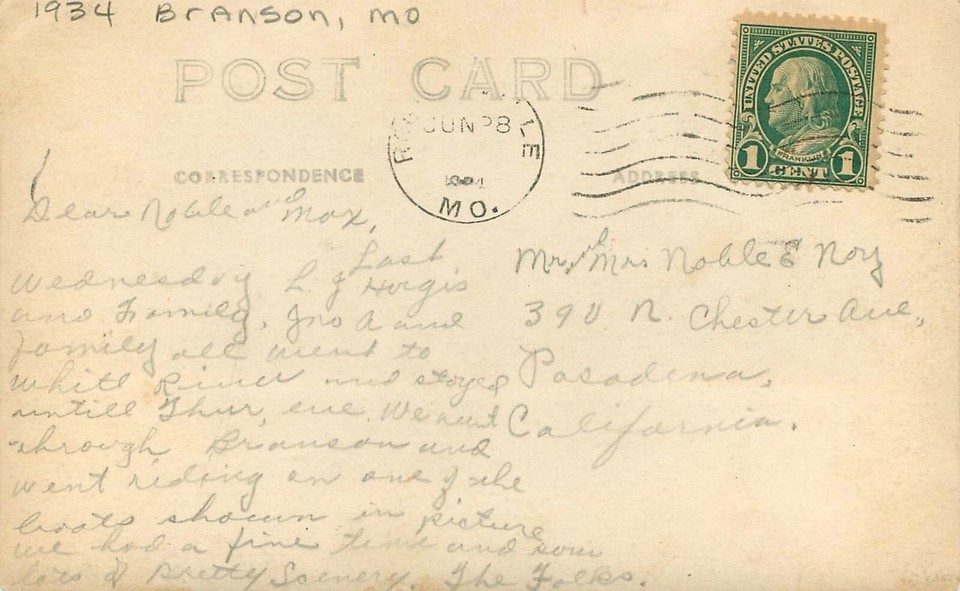 1934 Branson, MO
POST CARD
JUN 28
LE
MO.
UNITED STATES POSTAGE
FRANKLIN
1 CENT 1
CORRESPONDENCE
ADDRESS
Dear Noble and Max,
Last
Wednesday L. J Hargis
and Family, Jno A and
family all went to
White River and stayed
untill Thur, eve. We went
through Branson and
went riding on one of the
boats shown in picture
we had a fine time and saw
lots of Pretty Scenery. The Folks.
Mr. and Mrs Noble E Noy
390 N. Chester Ave.,
Pasadena,
California.